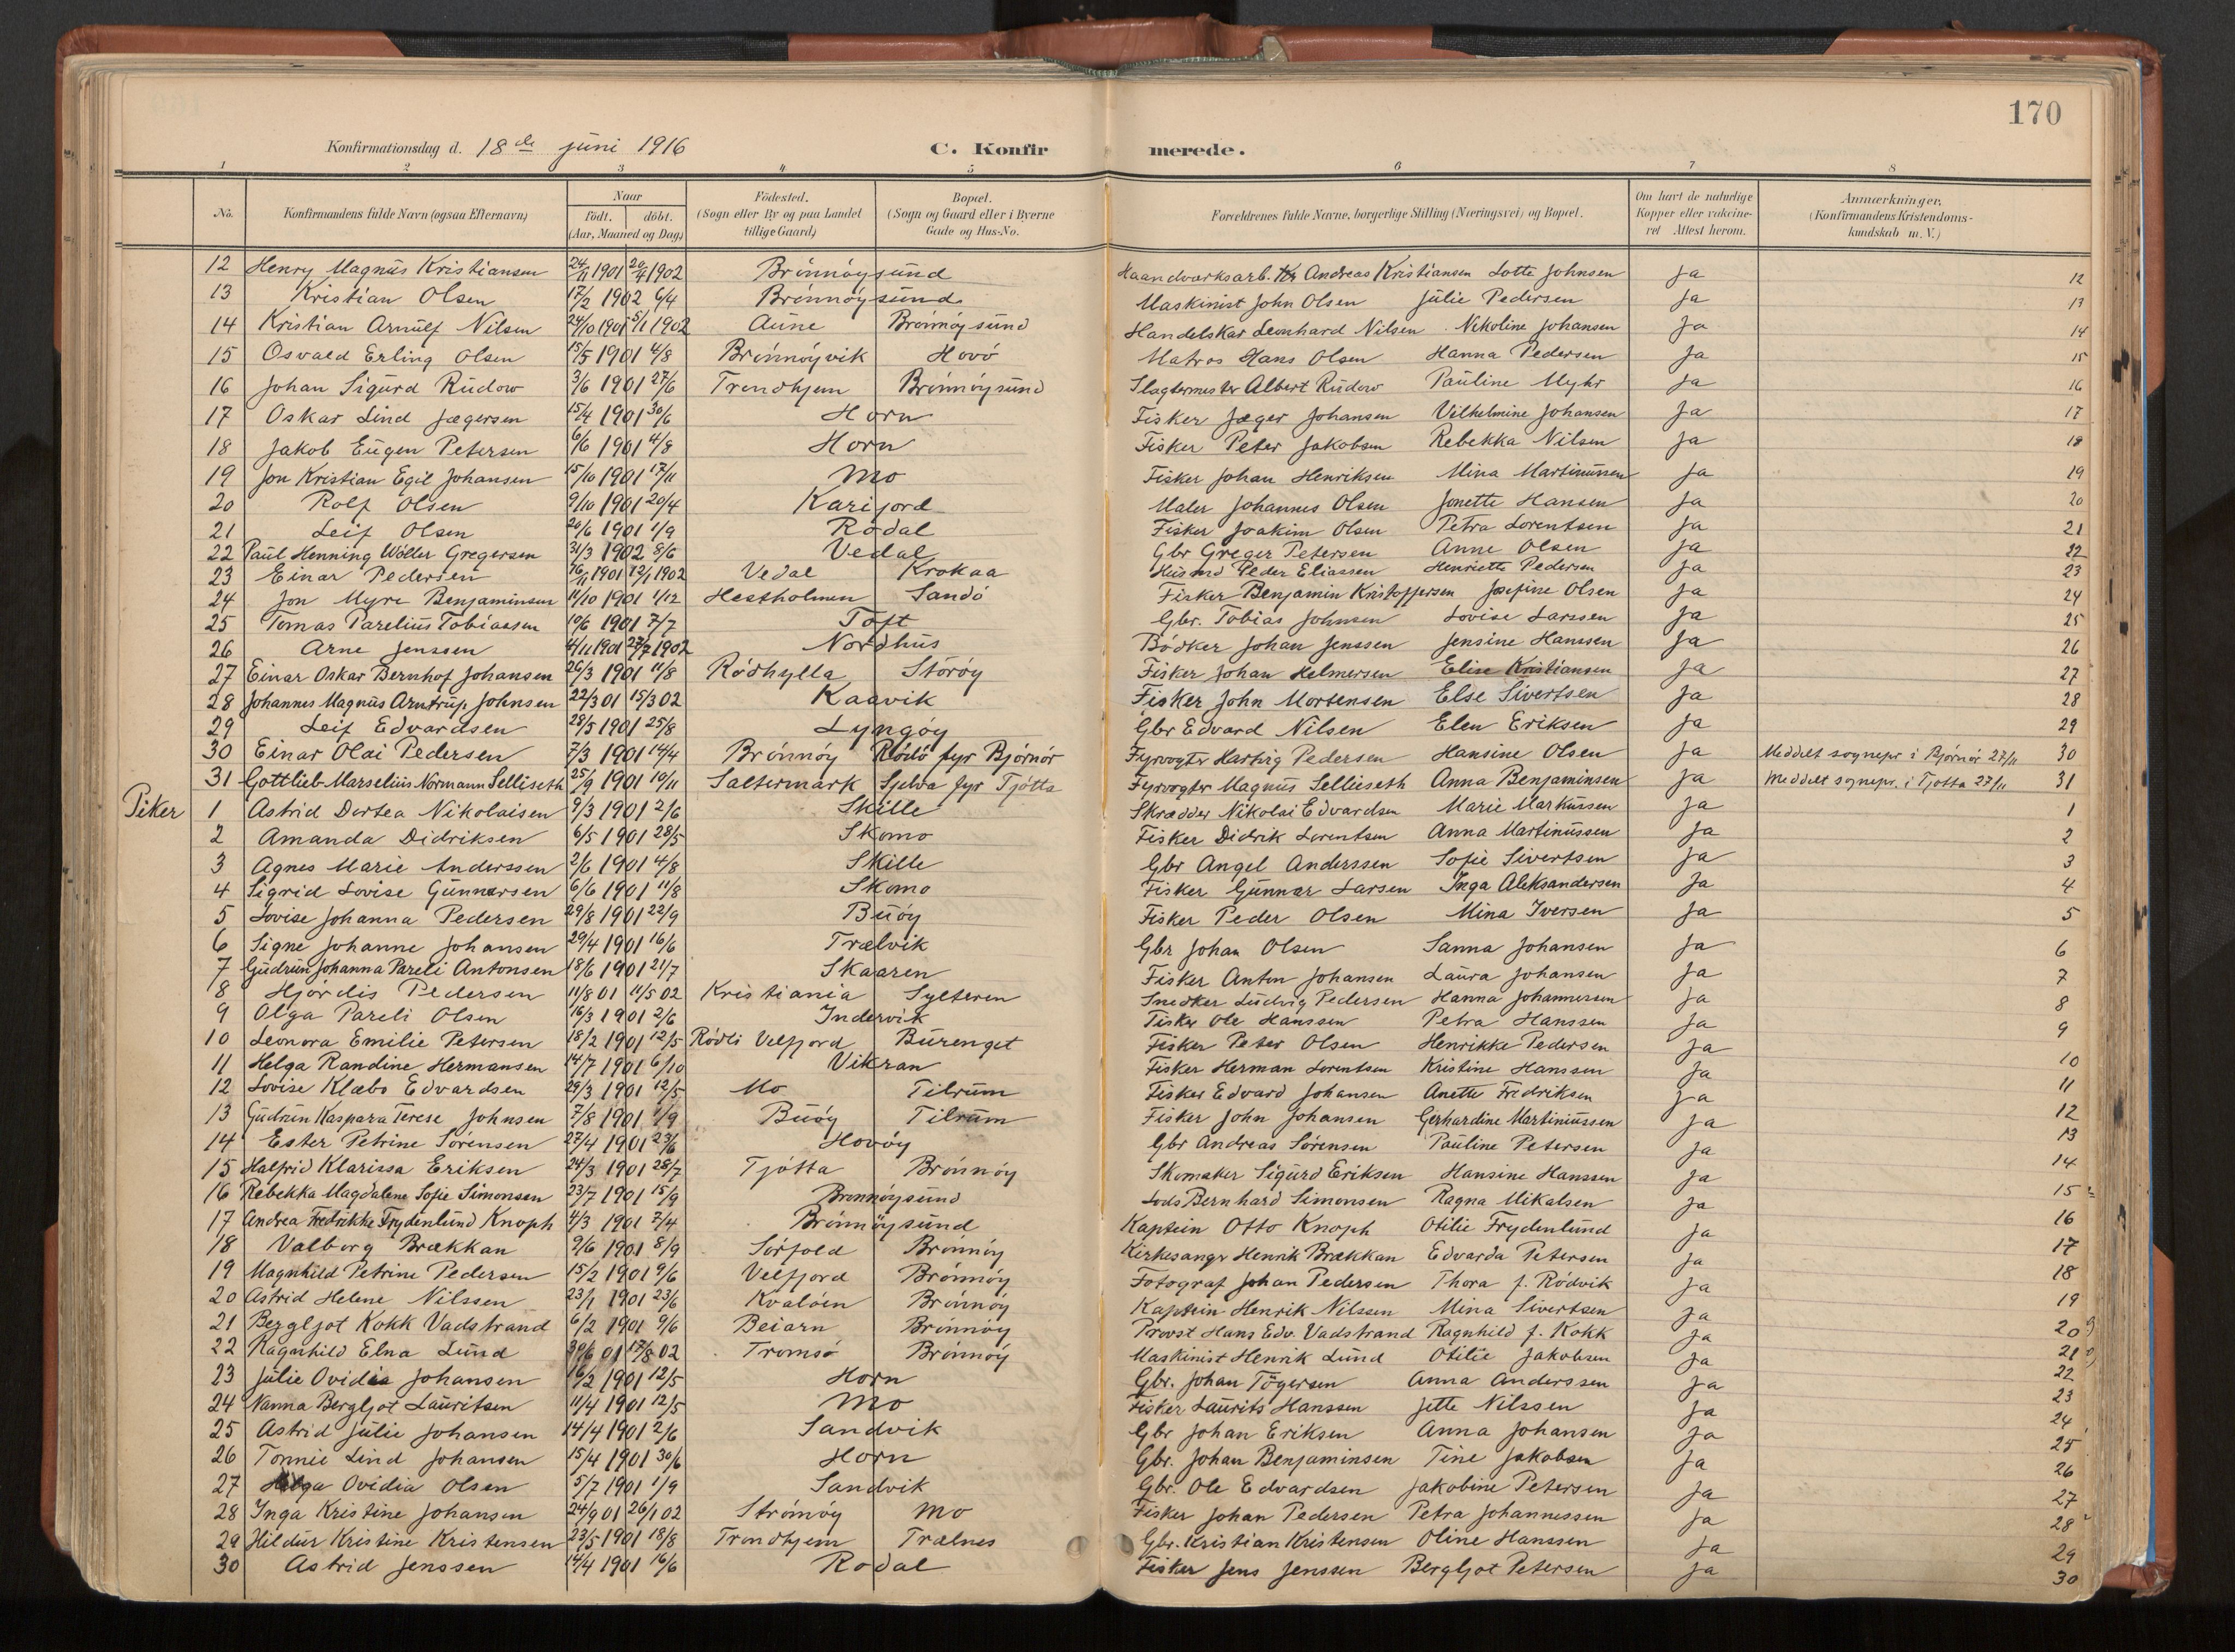 170
Konfirmationsdag d. 18de juni 1916 C. Konfirmerede.
1 2 3 4 5 6 7 8
No. Konfirmandens fulde Navn (ogsaa Efternavn) Naar født. døbt. (Aar, Maaned og Dag) Födested. (Sogn eller By og paa Landet tillige Gaard) Bopæl. (Sogn og Gaard eller i Byerne Gade og Hus-No. Forældrenes fulde Navne, borgerlige Stilling (Næringsvei) og Bopæl. Om havt de naturlige Kopper eller vakcineret Attest herom. Anmærkninger. (Konfirmandens Kristendomskundskab m. V.)
12 Henry Magnus Kristiansen 24/11 1901 20/4 1902 Brönnöysund Haandværksarb. Andreas Kristiansen Lotte Johnsen Ja 12
13 Kristian Olsen 17/2 1902 6/4 Brönnöysund Maskinist John Olsen Julie Pedersen Ja 13
14 Kristian Arnulf Nilsen 24/10 1901 5/1 1902 Aune Brönnöysund Handelskar Leonhard Nilsen Nikoline Johansen Ja 14
15 Osvald Erling Olsen 15/5 1901 4/8 Brönnöyvik Hovö Matros Hans Olsen Hanna Pedersen Ja 15
16 Johan Sigurd Rudow 3/6 1901 27/6 Trondhjem Brönnöysund Slagtermester Albert Rudow Pauline Myhr Ja 16
17 Oskar Lind Jægersen 15/4 1901 30/6 Horn Fisker Jæger Johansen Vilhelmine Johansen Ja 17
18 Jakob Eugen Petersen 6/6 1901 4/8 Horn Fisker Peter Jakobsen Rebekka Nilsen Ja 18
19 Jon Kristian Egil Johansen 15/10 1901 17/11 Mo Fisker Johan Henriksen Mina Martinussen Ja 19
20 Rolf Olsen 9/10 1901 20/4 Karifjord Maler Johannes Olsen Jonette Hansen Ja 20
21 Leif Olsen 20/6 1901 1/9 Rodal Fisker Joakim Olsen Petra Lorentsen Ja 21
22 Paul Henning Wöller Gregersen 31/3 1902 8/6 Vedal Gbr Greger Petersen Anne Olsen Ja 22
23 Einar Pedersen 16/11 1901 12/1 1902 Vedal Krokaa Husmd Peder Eliassen Henriette Pedersen Ja 23
24 Jon Myre Benjaminsen 11/10 1901 1/12 Hestholmen Sandö Fisker Benjamin Kristoffersen Josefine Olsen Ja 24
25 Tomas Parelius Tobiassen 10/6 1901 7/7 Toft Gbr. Tobias Johnsen Lovise Larssen Ja 25
26 Arne Jenssen 4/11 1901 27/2 1902 Nordhus Bödker Johan Jenssen Jensine Hanssen Ja 26
27 Einar Oskar Bernhof Johansen 26/3 1901 11/8 Rödhylla Storöy Fisker Johan Helmersen Elise Kristiansen Ja 27
28 Johannes Magnus Arntrup Johnsen 22/3 01 15/3 02 Kaavik Fisker John Mortensen Else Sivertsen Ja 28
29 Leif Edvardsen 28/5 1901 25/8 Lyngöy Gbr Edvard Nilsen Elen Eriksen Ja 29
30 Einar Olai Pedersen 7/3 1901 14/4 Brönnöy fyr Björnör Fyrvogter Hartvig Pedersen Hansine Olsen Ja Meddelt sognepr i Björnör 27/11 30
31 Gottlieb Marselius Normann Selliseth 25/9 1901 10/11 Saltermark Sjelva fyr Tjötta Fyrvogter Magnus Selliseth Anna Benjaminsen Ja Meddelt sognepr. i Tjøtta 27/11 31
Piker 1 Astrid Dortea Nikolaisen 9/3 1901 2/6 Skille Skrædder Nikolai Edvardsen Marie Markussen Ja 1
2 Amanda Didriksen 6/5 1901 28/5 Skomo Fisker Didrik Lorentsen Anna Martinussen Ja 2
3 Agnes Marie Anderssen 2/6 1901 4/8 Skille Gbr Angel Anderssen Sofie Sivertsen Ja 3
4 Sigrid Lovise Gunnarsen 6/6 1901 11/8 Skomo Fisker Gunnar Larsen Inga Aleksandersen Ja 4
5 Lovise Johanna Pedersen 29/8 1901 22/9 Buöy Fisker Peder Olsen Mina Iversen Ja 5
6 Signe Johanne Johansen 29/4 1901 16/6 Trælvik Gbr Johan Olsen Sanna Johansen Ja 6
7 Gudrun Johanna Pareli Antonsen 18/6 1901 21/7 Skaaren Fisker Anton Johansen Laura Johansen Ja 7
8 Hjördis Pedersen 11/8 01 11/5 02 Kristiania Sylteren Snedker Ludvig Pedersen Hanna Johannessen Ja 8
9 Olga Pareli Olsen 16/3 1901 2/6 Indervik Fisker Ole Hanssen Petra Hanssen Ja 9
10 Leonora Emilie Petersen 18/2 1901 12/5 Rödli Velfjord Burenget Fisker Peter Olsen Henrikke Pedersen Ja 10
11 Helga Randine Hermansen 14/7 1901 6/10 Vikran Fisker Herman Lorentsen Kristine Hanssen Ja 11
12 Lovise Klæbo Edvardsen 29/3 1901 12/5 Mo Tilrum Fisker Edvard Johansen Anette Fredriksen Ja 12
13 Gudrun Kaspara Terese Johnsen 7/8 1901 1/9 Buöy Tilrum Fisker John Johansen Gerhardine Martinussen Ja 13
14 Ester Petrine Sörensen 27/4 1901 23/6 Hovöy Gbr Andreas Sörensen Pauline Petersen Ja 14
15 Halfrid Klarissa Eriksen 24/3 1901 28/7 Tjötta Brönnöy Skomaker Sigurd Eriksen Hansine Hanssen Ja 15
16 Rebekka Magdalene Sofie Simonsen 23/7 1901 15/9 Brønnøysund Lods Bernhard Simonsen Ragna Mikalsen Ja 16
17 Andrea Fredrikke Frydenlund Knoph 4/3 1901 7/4 Brönnöysund Kaptein Otto Knoph Otilie Frydenlund Ja 17
18 Valborg Brækkan 9/6 1901 8/9 Sörfold Brönnöy Kirkesangr Henrik Brækkan Edvarda Petersen Ja 18
19 Magnhild Petrine Pedersen 15/2 1901 9/6 Velfjord Brönnöy Fotograf Johan Pedersen Thora f. Rödvik Ja 19
20 Astrid Helene Nilssen 23/1 1901 23/6 Kvalöen Brönnöy Kaptein Henrik Nilssen Mina Sivertsen Ja 20
21 Bergljot Kokk Vadstrand 6/2 1901 9/6 Beiarn Brönnöy Provst Hans Edv. Vadstrand Ragnhild f. Kokk Ja 21
22 Ragnhild Elna Lund 30/6 01 17/8 02 Tromsö Brönnöy Maskinist Henrik Lund Otilie Jakobsen Ja 22
23 Julie Ovidia Johansen 16/2 1901 12/5 Horn Gbr. Johan Tögersen Anna Anderssen Ja 23
24 Nanna Bergljot Lauritsen 11/4 1901 12/5 Mo Fisker Laurits Hanssen Jette Nilssen Ja 24
25 Astrid Julie Johansen 14/4 1901 2/6 Sandvik Gbr Johan Eriksen Anna Johansen Ja 25
26 Tonnie Lind Johansen 15/4 1901 30/6 Horn Gbr. Johan Benjaminsen Tine Jakobsen Ja 26
27 Helga Ovidia Olsen 5/7 1901 1/9 Sandvik Gbr. Ole Edvardsen Jakobine Petersen Ja 27
28 Inga Kristine Johansen 24/9 01 26/1 02 Strömöy Mo Fisker Johan Pedersen Petra Johannessen Ja 28
29 Hildur Kristine Kristensen 23/5 1901 18/8 Trondhjem Trælnes Gbr. Kristian Kristensen Oline Hanssen Ja 29
30 Astrid Jenssen 14/4 1901 16/6 Rodal Fisker Jens Jenssen Bergljot Petersen Ja 30